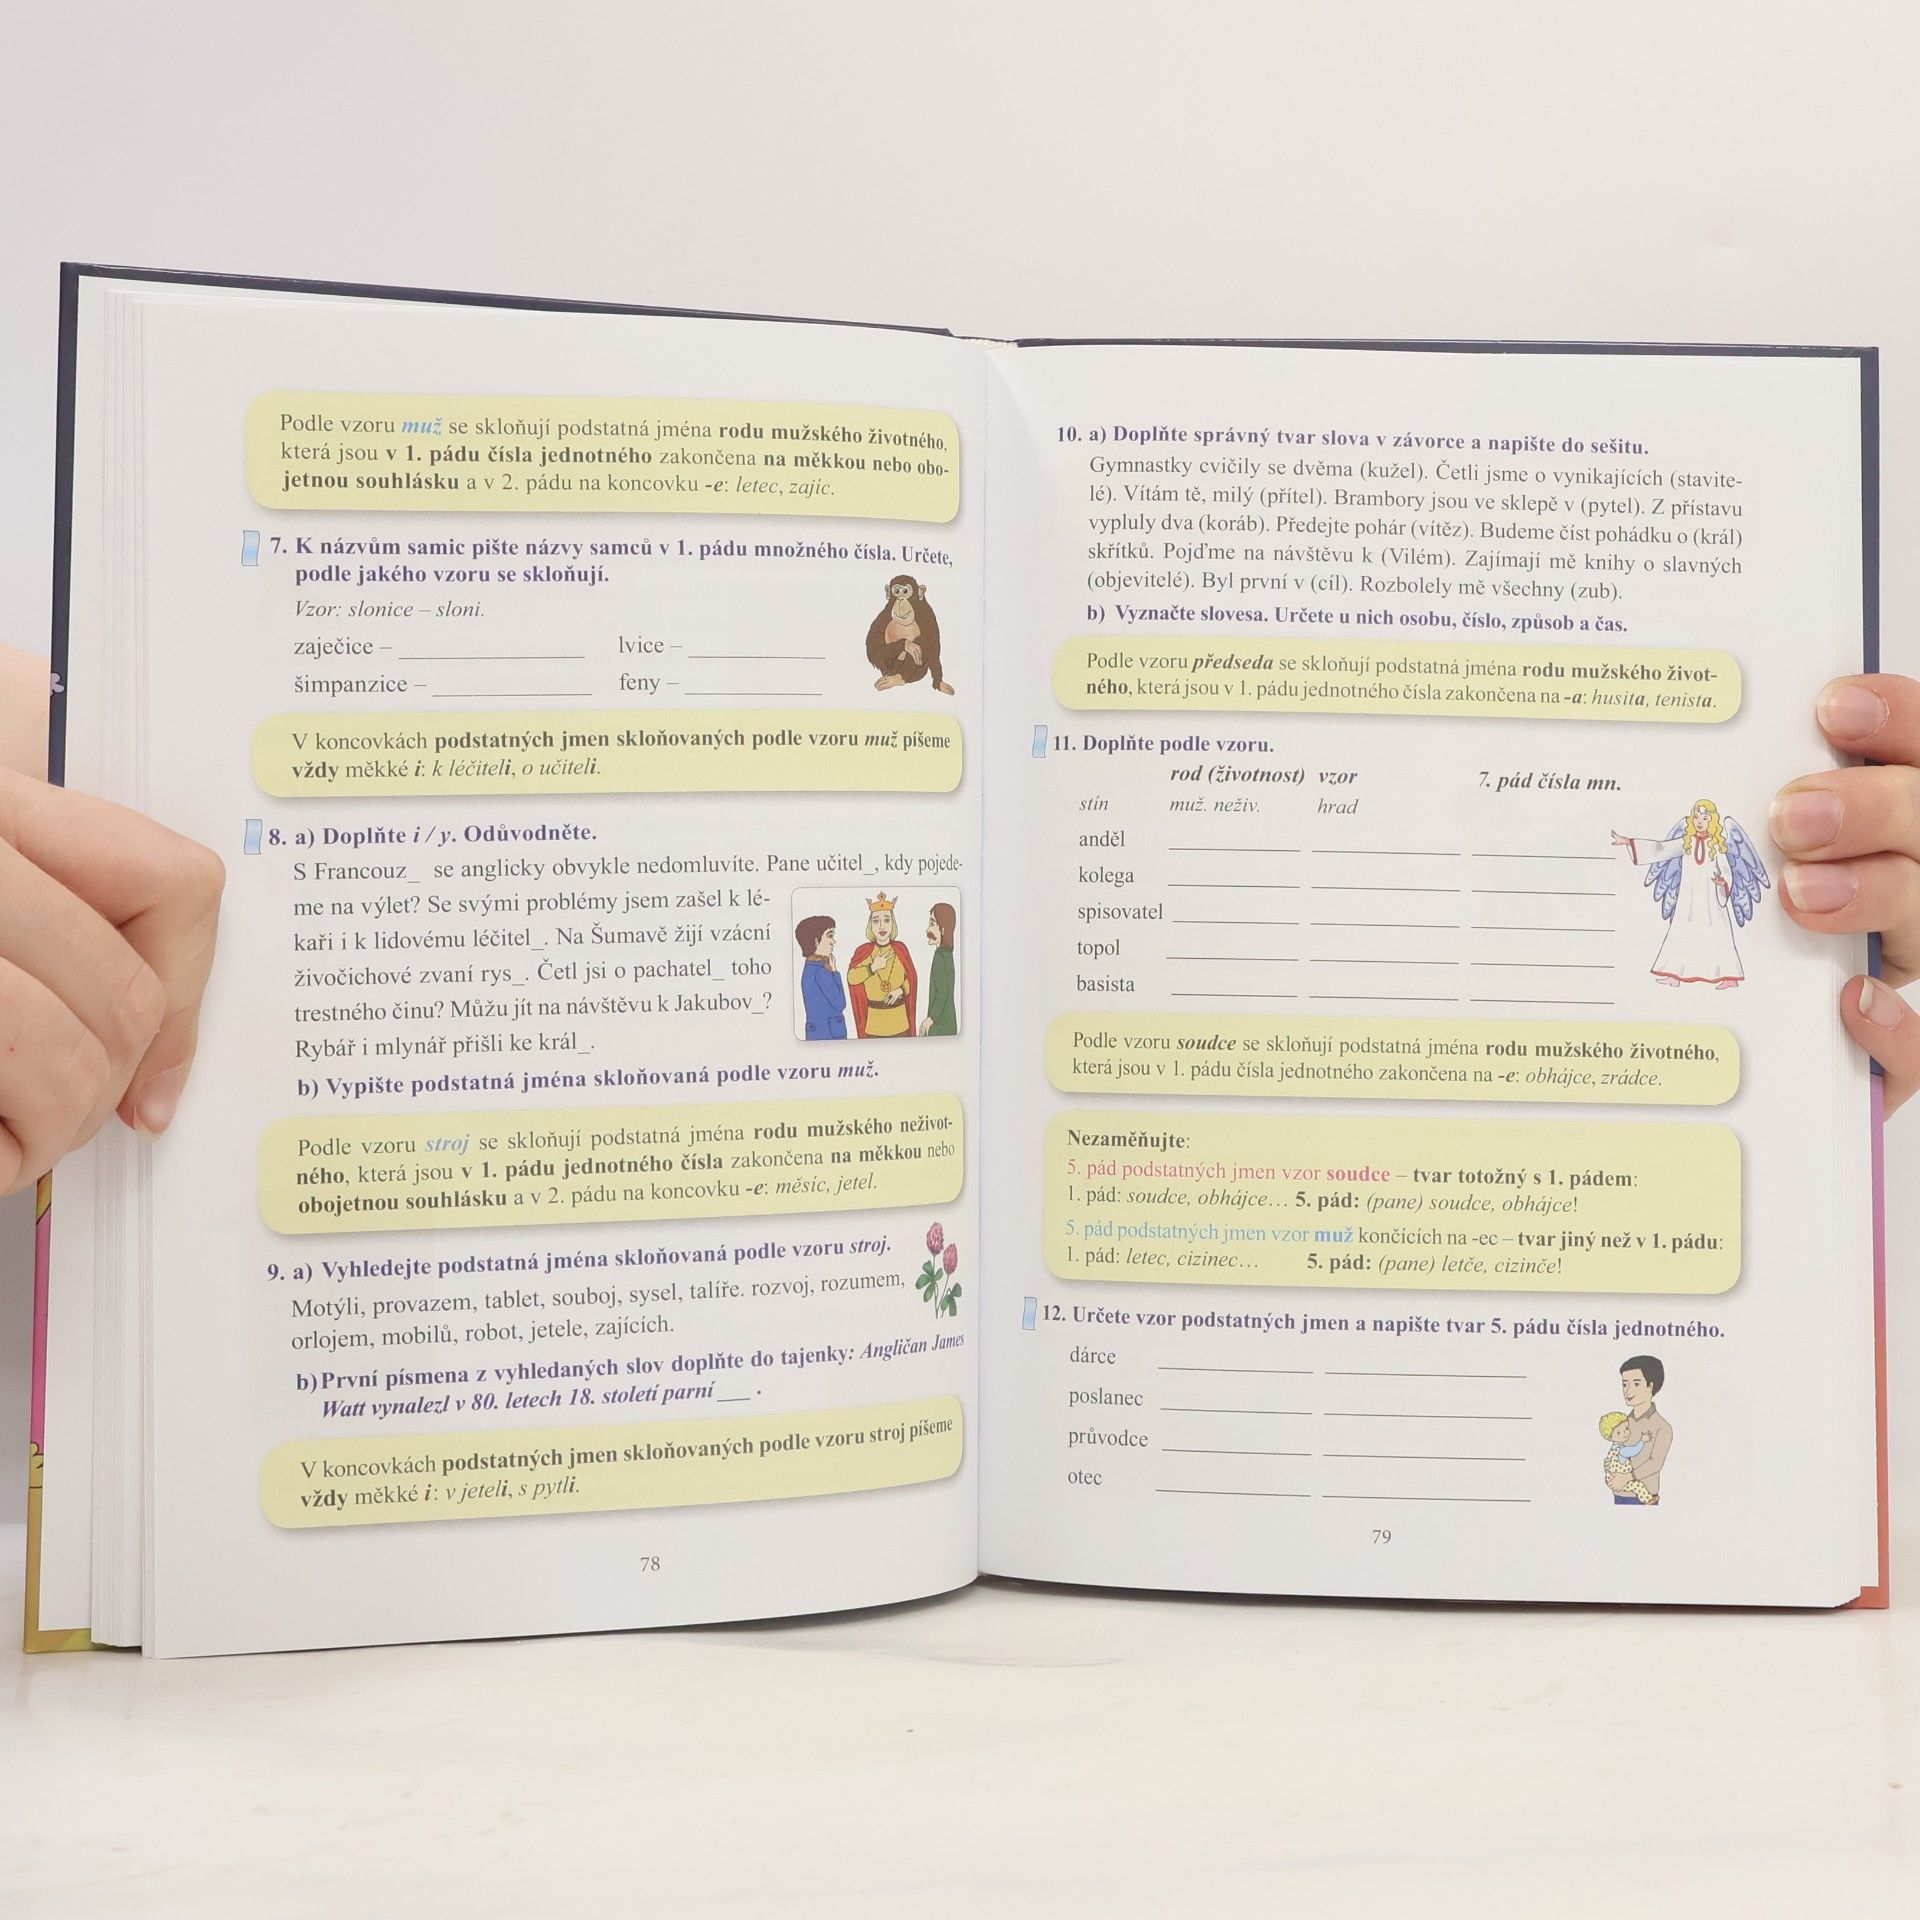 Podle vzoru muž se skloňují podstatná jména rodu mužského životného,
která jsou v 1. pádu čísla jednotného zakončena na měkkou nebo obo-
jetnou souhlásku a v 2. pádu na koncovku -e: letec, zajíc.
7. K názvům samic pište názvy samců v 1. pádu množného čísla. Určete,
podle jakého vzoru se skloňují.
Vzor: slonice – sloni.
zaječice – ____ lvice – ____
šimpanzice – ____ feny – ____
V koncovkách podstatných jmen skloňovaných podle vzoru muž píšeme
vždy měkké i: k léčiteli, o učiteli.
8. a) Doplňte i / y. Odůvodněte.
S Francouz_ se anglicky obvykle nedomluvíte. Pane učitel_, kdy pojede-
me na výlet? Se svými problémy jsem zašel k lé-
kaři i k lidovému léčitel_. Na Šumavě žijí vzácní
živočichové zvaní rys_. Četl jsi o pachatel_ toho
trestného činu? Můžu jít na návštěvu k Jakubov_?
Rybář i mlynář přišli ke král_.
b) Vypište podstatná jména skloňovaná podle vzoru muž.
Podle vzoru stroj se skloňují podstatná jména rodu mužského neživot-
ného, která jsou v 1. pádu jednotného čísla zakončena na měkkou nebo
obojetnou souhlásku a v 2. pádu na koncovku -e: měsíc, jetel.
9. a) Vyhledejte podstatná jména skloňovaná podle vzoru stroj.
Motýli, provazem, tablet, souboj, sysel, talíře. rozvoj, rozumem,
orlojem, mobilů, robot, jetele, zajících.
b) První písmena z vyhledaných slov doplňte do tajenky: Angličan James
Watt vynalezl v 80. letech 18. století parní ___ .
V koncovkách podstatných jmen skloňovaných podle vzoru stroj píšeme
vždy měkké i: v jeteli, s pytli.
78
10. a) Doplňte správný tvar slova v závorce a napište do sešitu.
Gymnastky cvičily se dvěma (kužel). Četli jsme o vynikajících (stavite-
lé). Vítám tě, milý (přítel). Brambory jsou ve sklepě v (pytel). Z přístavu
vypluly dva (koráb). Předejte pohár (vítěz). Budeme číst pohádku o (král)
skřítků. Pojďme na návštěvu k (Vilém). Zajímají mě knihy o slavných
(objevitelé). Byl první v (cíl). Rozbolely mě všechny (zub).
b) Vyznačte slovesa. Určete u nich osobu, číslo, způsob a čas.
Podle vzoru předseda se skloňují podstatná jména rodu mužského život-
ného, která jsou v 1. pádu jednotného čísla zakončena na -a: husita, tenista.
11. Doplňte podle vzoru.
rod (životnost) vzor 7. pád čísla mn.
stín muž. neživ. hrad
anděl ____ ____ ____
kolega ____ ____ ____
spisovatel ____ ____ ____
topol ____ ____ ____
basista ____ ____ ____
Podle vzoru soudce se skloňují podstatná jména rodu mužského životného,
která jsou v 1. pádu čísla jednotného zakončena na -e: obhájce, zrádce.
Nezaměňujte:
5. pád podstatných jmen vzor soudce – tvar totožný s 1. pádem:
1. pád: soudce, obhájce… 5. pád: (pane) soudce, obhájce!
5. pád podstatných jmen vzor muž končících na -ec – tvar jiný než v 1. pádu:
1. pád: letec, cizinec… 5. pád: (pane) letče, cizinče!
12. Určete vzor podstatných jmen a napište tvar 5. pádu čísla jednotného.
dárce ____ ____
poslanec ____ ____
průvodce ____ ____
otec ____ ____
79